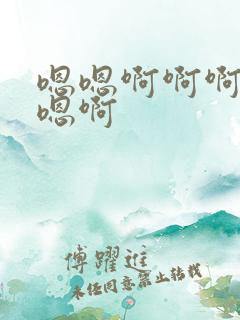 嗯嗯啊啊啊
嗯啊
傅躍進
未经同意禁止转载